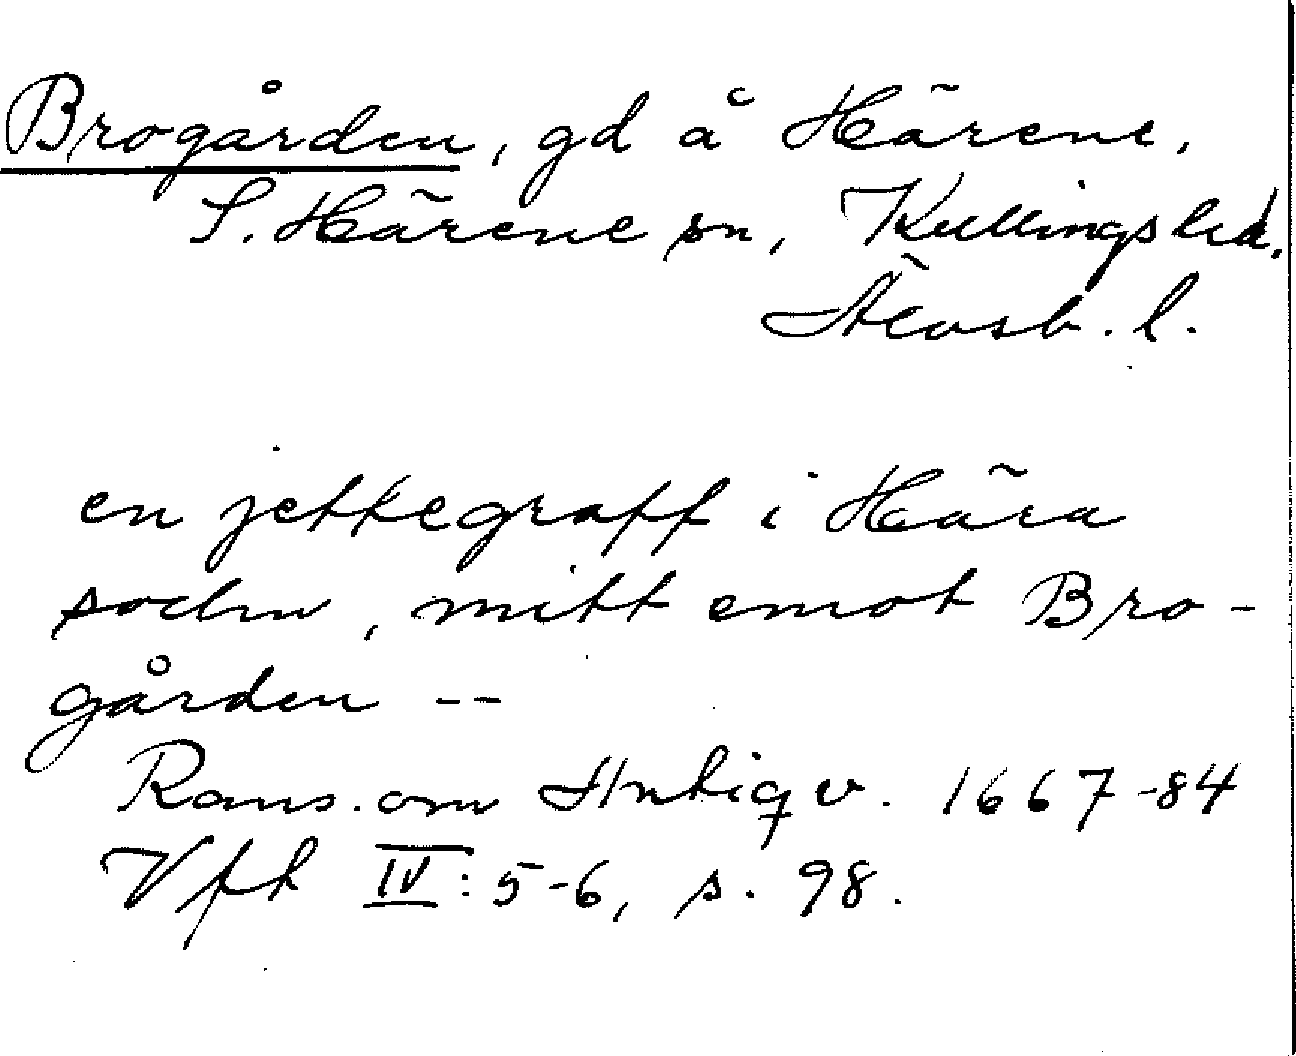 Brogården, gd å Härene,
S. Härene sn, Kullings hd,
Älvsb. l.
en jettegraff i Hära
sochn, mitt emot Bro-
gården --
Rans. om Antiqv. 1667-84
Vft IV: 5-6, s. 98.